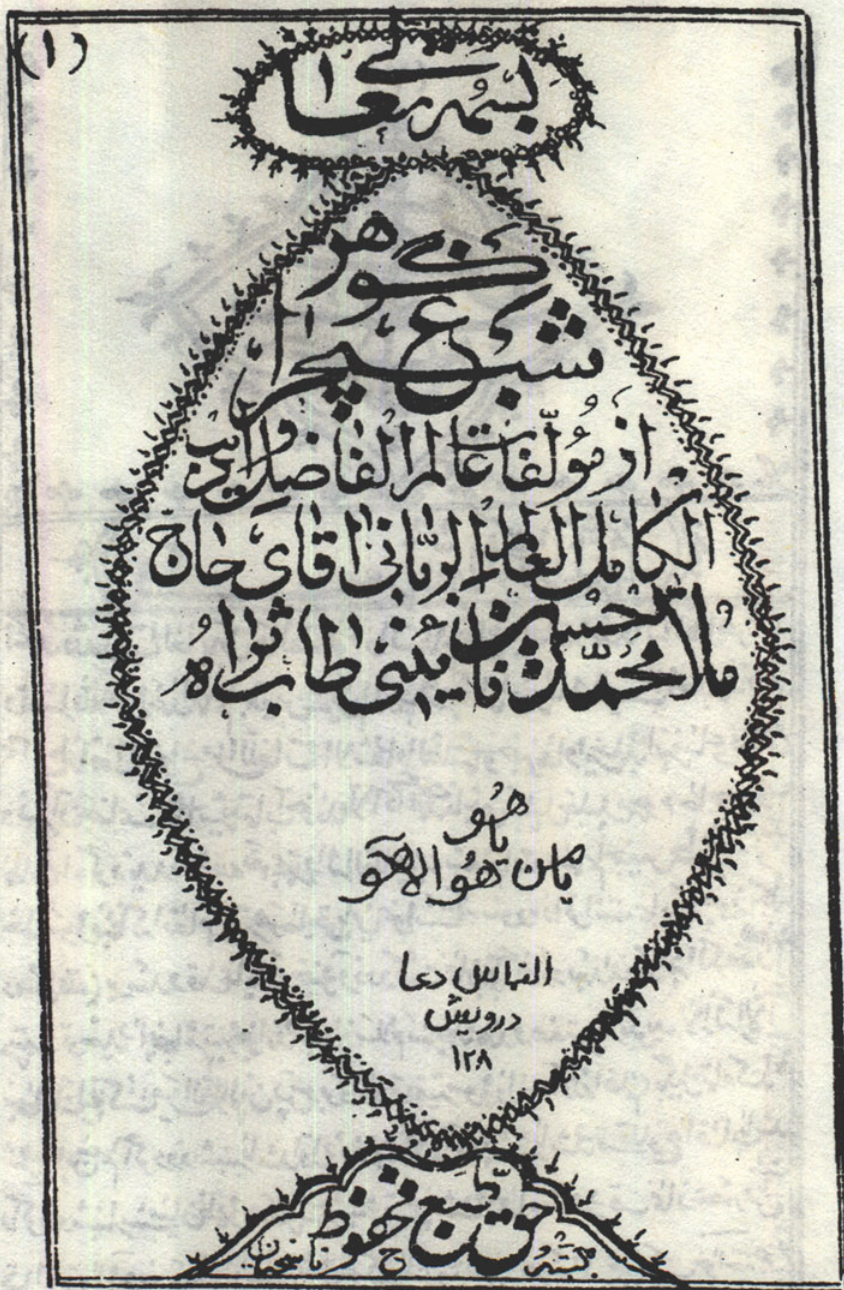 (۱)
بسمه تعالی
گوهر
شب چراغ
از مؤلّفات عالم الفاضل و ادیب
الکامل العالم الربّانی اقای حاج
ملا محمّد حسن نائینی طاب ثراه
هو
یا هو
یا من هو الا هو
التماس دعا
درویش
۱۲۸
حق طبع محفوظ